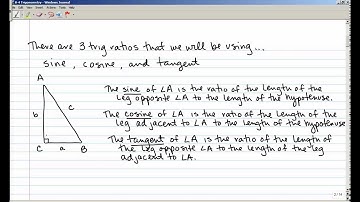 8-4 Trigonometry - Windows Journal
There are 3 trig ratios that we will be using...
sine, cosine, and tangent
A
b
c
C
a
B
The sine of ∠A is the ratio of the length of the
leg opposite ∠A to the length of the hypotenuse.
The cosine of ∠A is the ratio of the length of the
leg adjacent to ∠A to the length of the hypotenuse
The tangent of ∠A is the ratio of the length of
the leg opposite ∠A to the length of the leg
adjacend to ∠A.